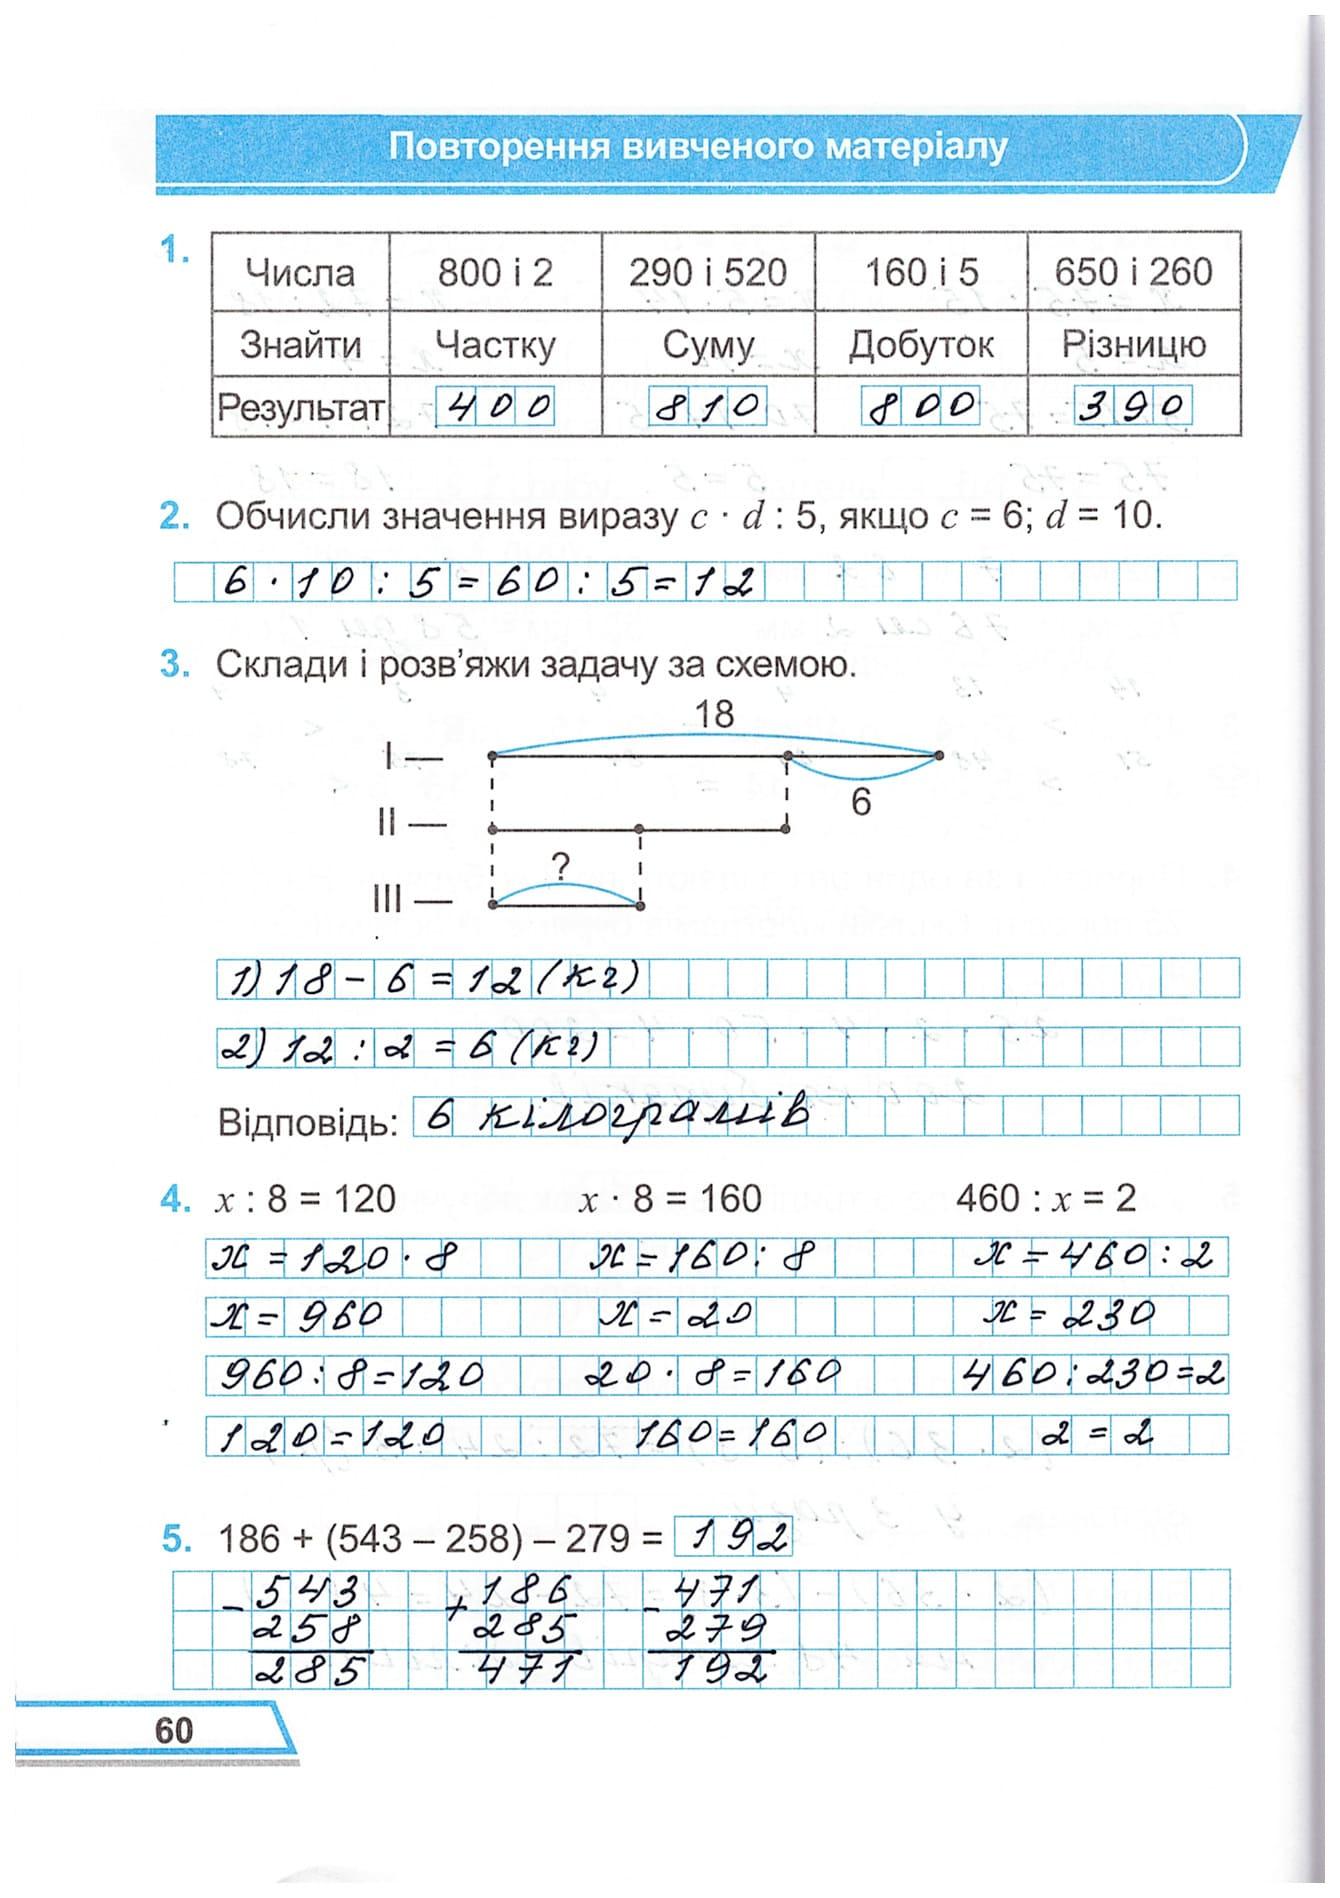 Повторення вивченого матеріалу
1.
Числа 800 і 2 290 і 520 160 і 5 650 і 260
Знайти Частку Суму Добуток Різницю
Результат 400 810 800 390
2. Обчисли значення виразу c · d : 5, якщо c = 6; d = 10.
6 · 10 : 5 = 60 : 5 = 12
3. Склади і розв'яжи задачу за схемою.
18
I —
6
II —
?
III —
1) 18 – 6 = 12 (кг)
2) 12 : 2 = 6 (кг)
Відповідь: 6 кілограмів
4. x : 8 = 120 x · 8 = 160 460 : x = 2
x = 120 · 8 x = 160 : 8 x = 460 : 2
x = 960 x = 20 x = 230
960 : 8 = 120 20 · 8 = 160 460 : 230 = 2
120 = 120 160 = 160 2 = 2
5. 186 + (543 – 258) – 279 = 192
– 543 + 186 – 471
258 285 279
285 471 192
60